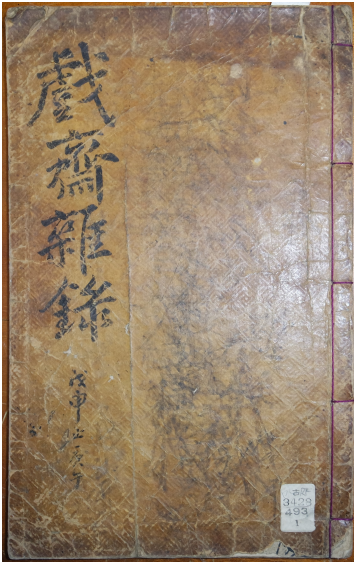 戲齋雜錄
戊申
3429
493
1